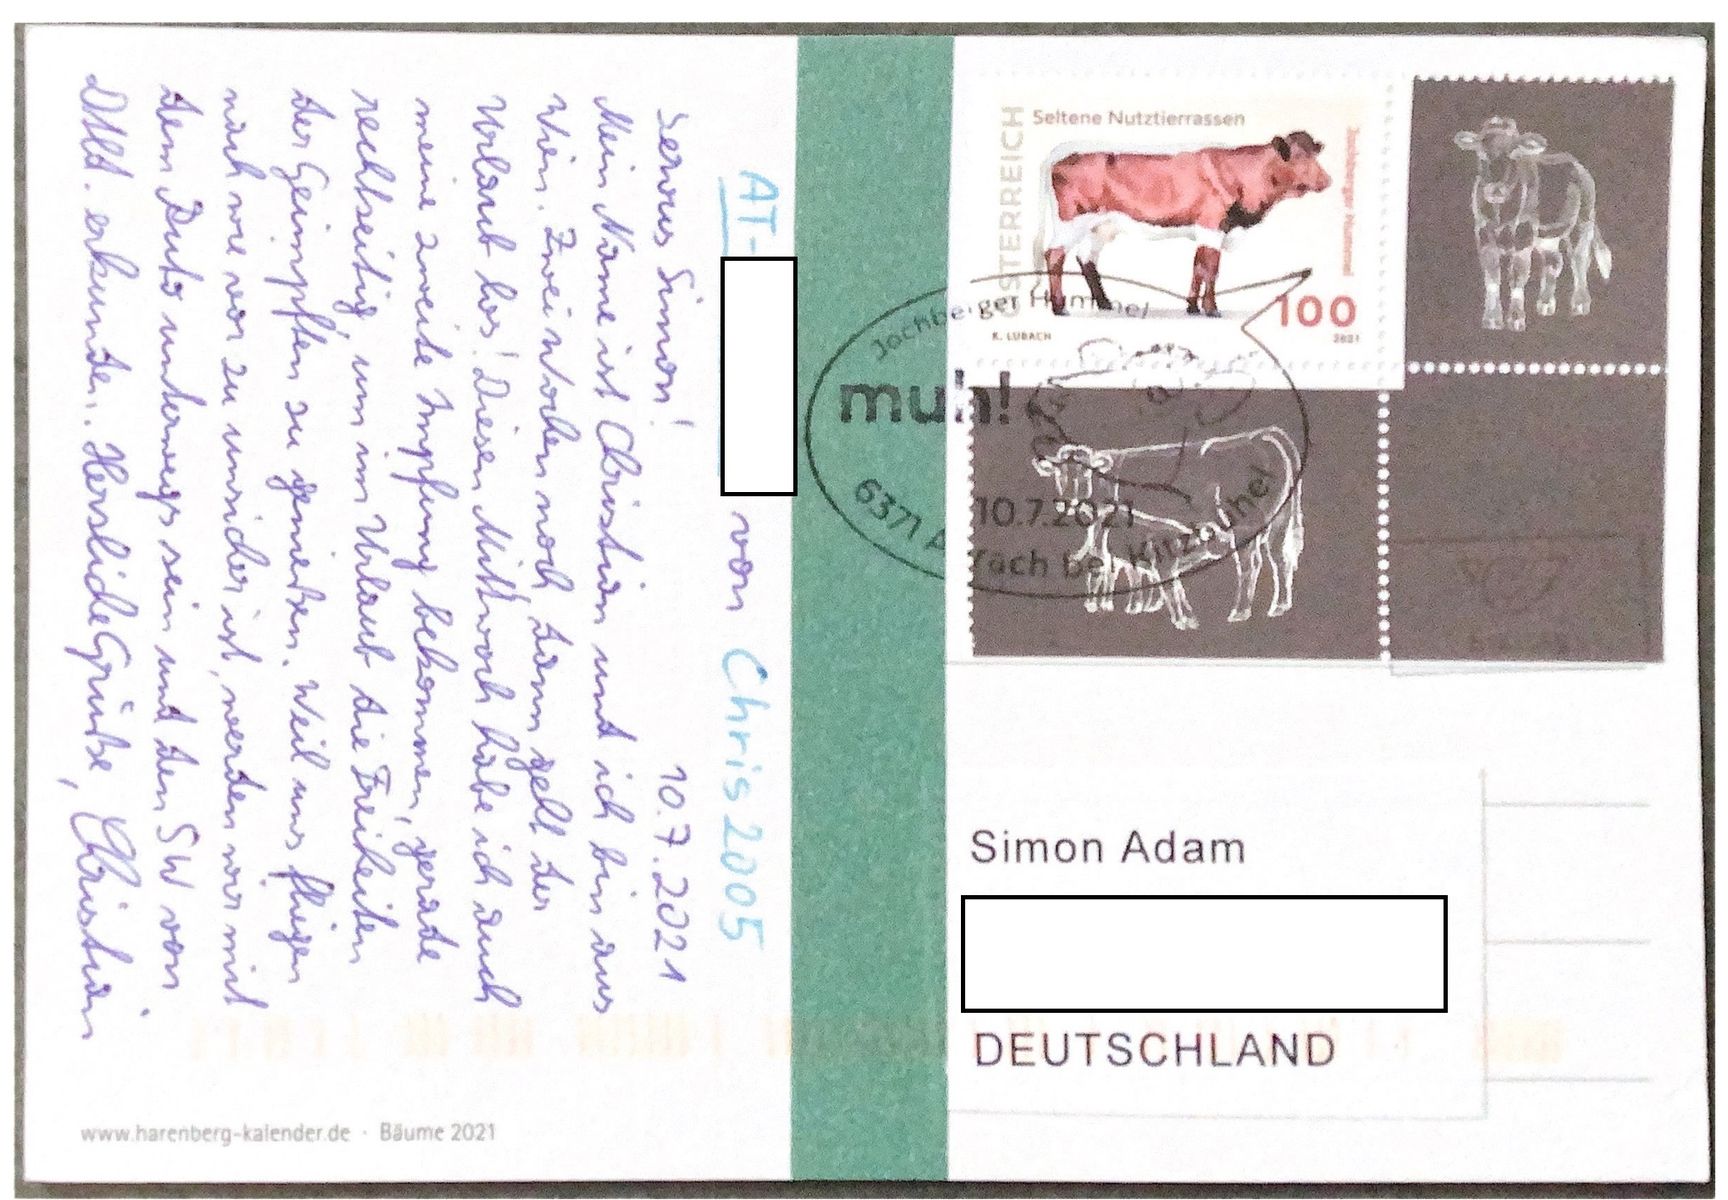 AT-
von Chris2005
Servus Simon! 10.7.2021
Mein Name ist Christian und ich bin aus
Wien. Zwei Wochen noch, dann geht der
Urlaub los! Diesen Mittwoch habe ich auch
meine zweite Impfung bekommen, gerade
rechtzeitig, um im Urlaub die Freiheiten
der Geimpften zu genießen. Weil uns fliegen
nach wie vor zu unsicher ist, werden wir mit
dem Auto unterwegs sein und den SW von
Dtld. erkunden. Herzliche Grüße, Christian
www.harenberg-kalender.de · Bäume 2021
ÖSTERREICH
Seltene Nutztierrassen
Jochberger Hummel
100
K. LUBACH
2021
Jochberger Hummel
muh!
10.7.2021
6371 Aurach bei Kitzbühel
Simon Adam
DEUTSCHLAND